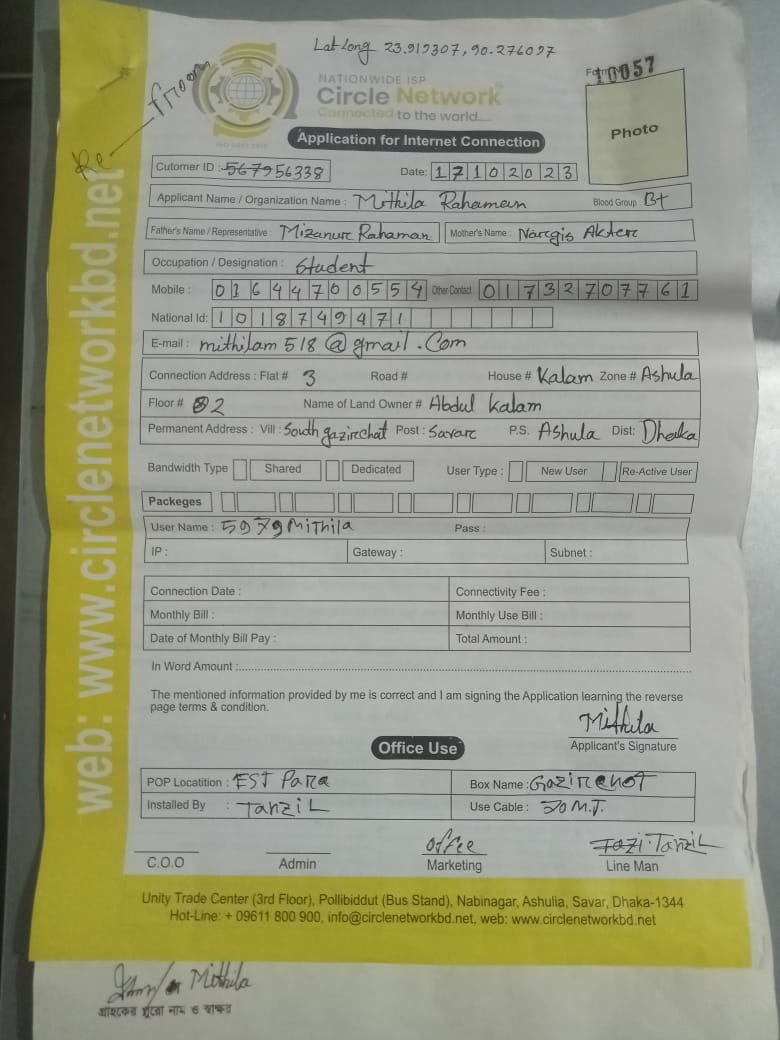 Lat Long 23.919307, 90.276097
Form
10057
Re-from
NATIONWIDE ISP
Circle Network
Connected to the world....
Photo
Application for Internet Connection
Cutomer ID : 567956338 Date: 17102023
Applicant Name / Organization Name : Mithila Rahaman Blood Group : B+
Father's Name / Representative : Mizanur Rahaman Mother's Name : Nargis Akter
Occupation / Designation : Student
Mobile : 01644700554 Other Contact 01732707761
National Id: 1018749471
E-mail : mithilam518@gmail.Com
Connection Address : Flat # 3 Road # House # Kalam Zone # Ashula
Floor # 2 Name of Land Owner # Abdul Kalam
Permanent Address : Vill : South gazirchat Post : Savar P.S. Ashula Dist: Dhaka
Bandwidth Type Shared Dedicated User Type : New User Re-Active User
Packeges
User Name : 5979Mithila Pass :
IP : Gateway : Subnet :
Connection Date : Connectivity Fee :
Monthly Bill : Monthly Use Bill :
Date of Monthly Bill Pay : Total Amount :
In Word Amount :
The mentioned information provided by me is correct and I am signing the Application learning the reverse
page terms & condition.
Mithila
Applicant's Signature
Office Use
POP Locatition : EST Para Box Name : Gazirchot
Installed By : TanziL Use Cable : 20 M.T.
office TanziL
C.O.O Admin Marketing Line Man
Unity Trade Center (3rd Floor), Pollibiddut (Bus Stand), Nabinagar, Ashulia, Savar, Dhaka-1344
Hot-Line: + 09611 800 900, info@circlenetworkbd.net, web: www.circlenetworkbd.net
web: www.circlenetworkbd.net
Mithila
গ্রাহকের পুরো নাম ও স্বাক্ষর